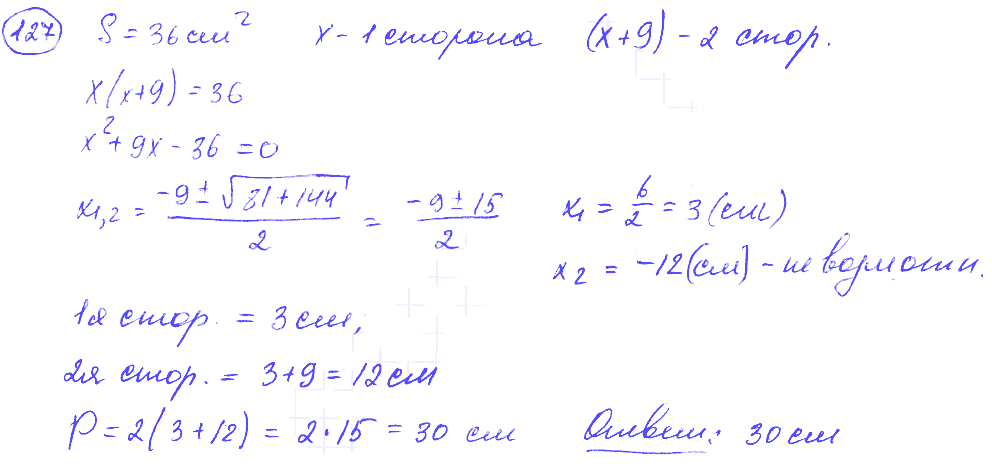 127 S = 36 см² x - 1 сторона (x+9) - 2 стор.
x(x+9) = 36
x² + 9x - 36 = 0
x₁,₂ = (-9 ± √(81+144))/2 = (-9 ± 15)/2 x₁ = 6/2 = 3 (см)
x₂ = -12 (см) -
1я стор. = 3 см,
2я стор. = 3+9 = 12 см
P = 2(3+12) = 2·15 = 30 см Ответ: 30 см